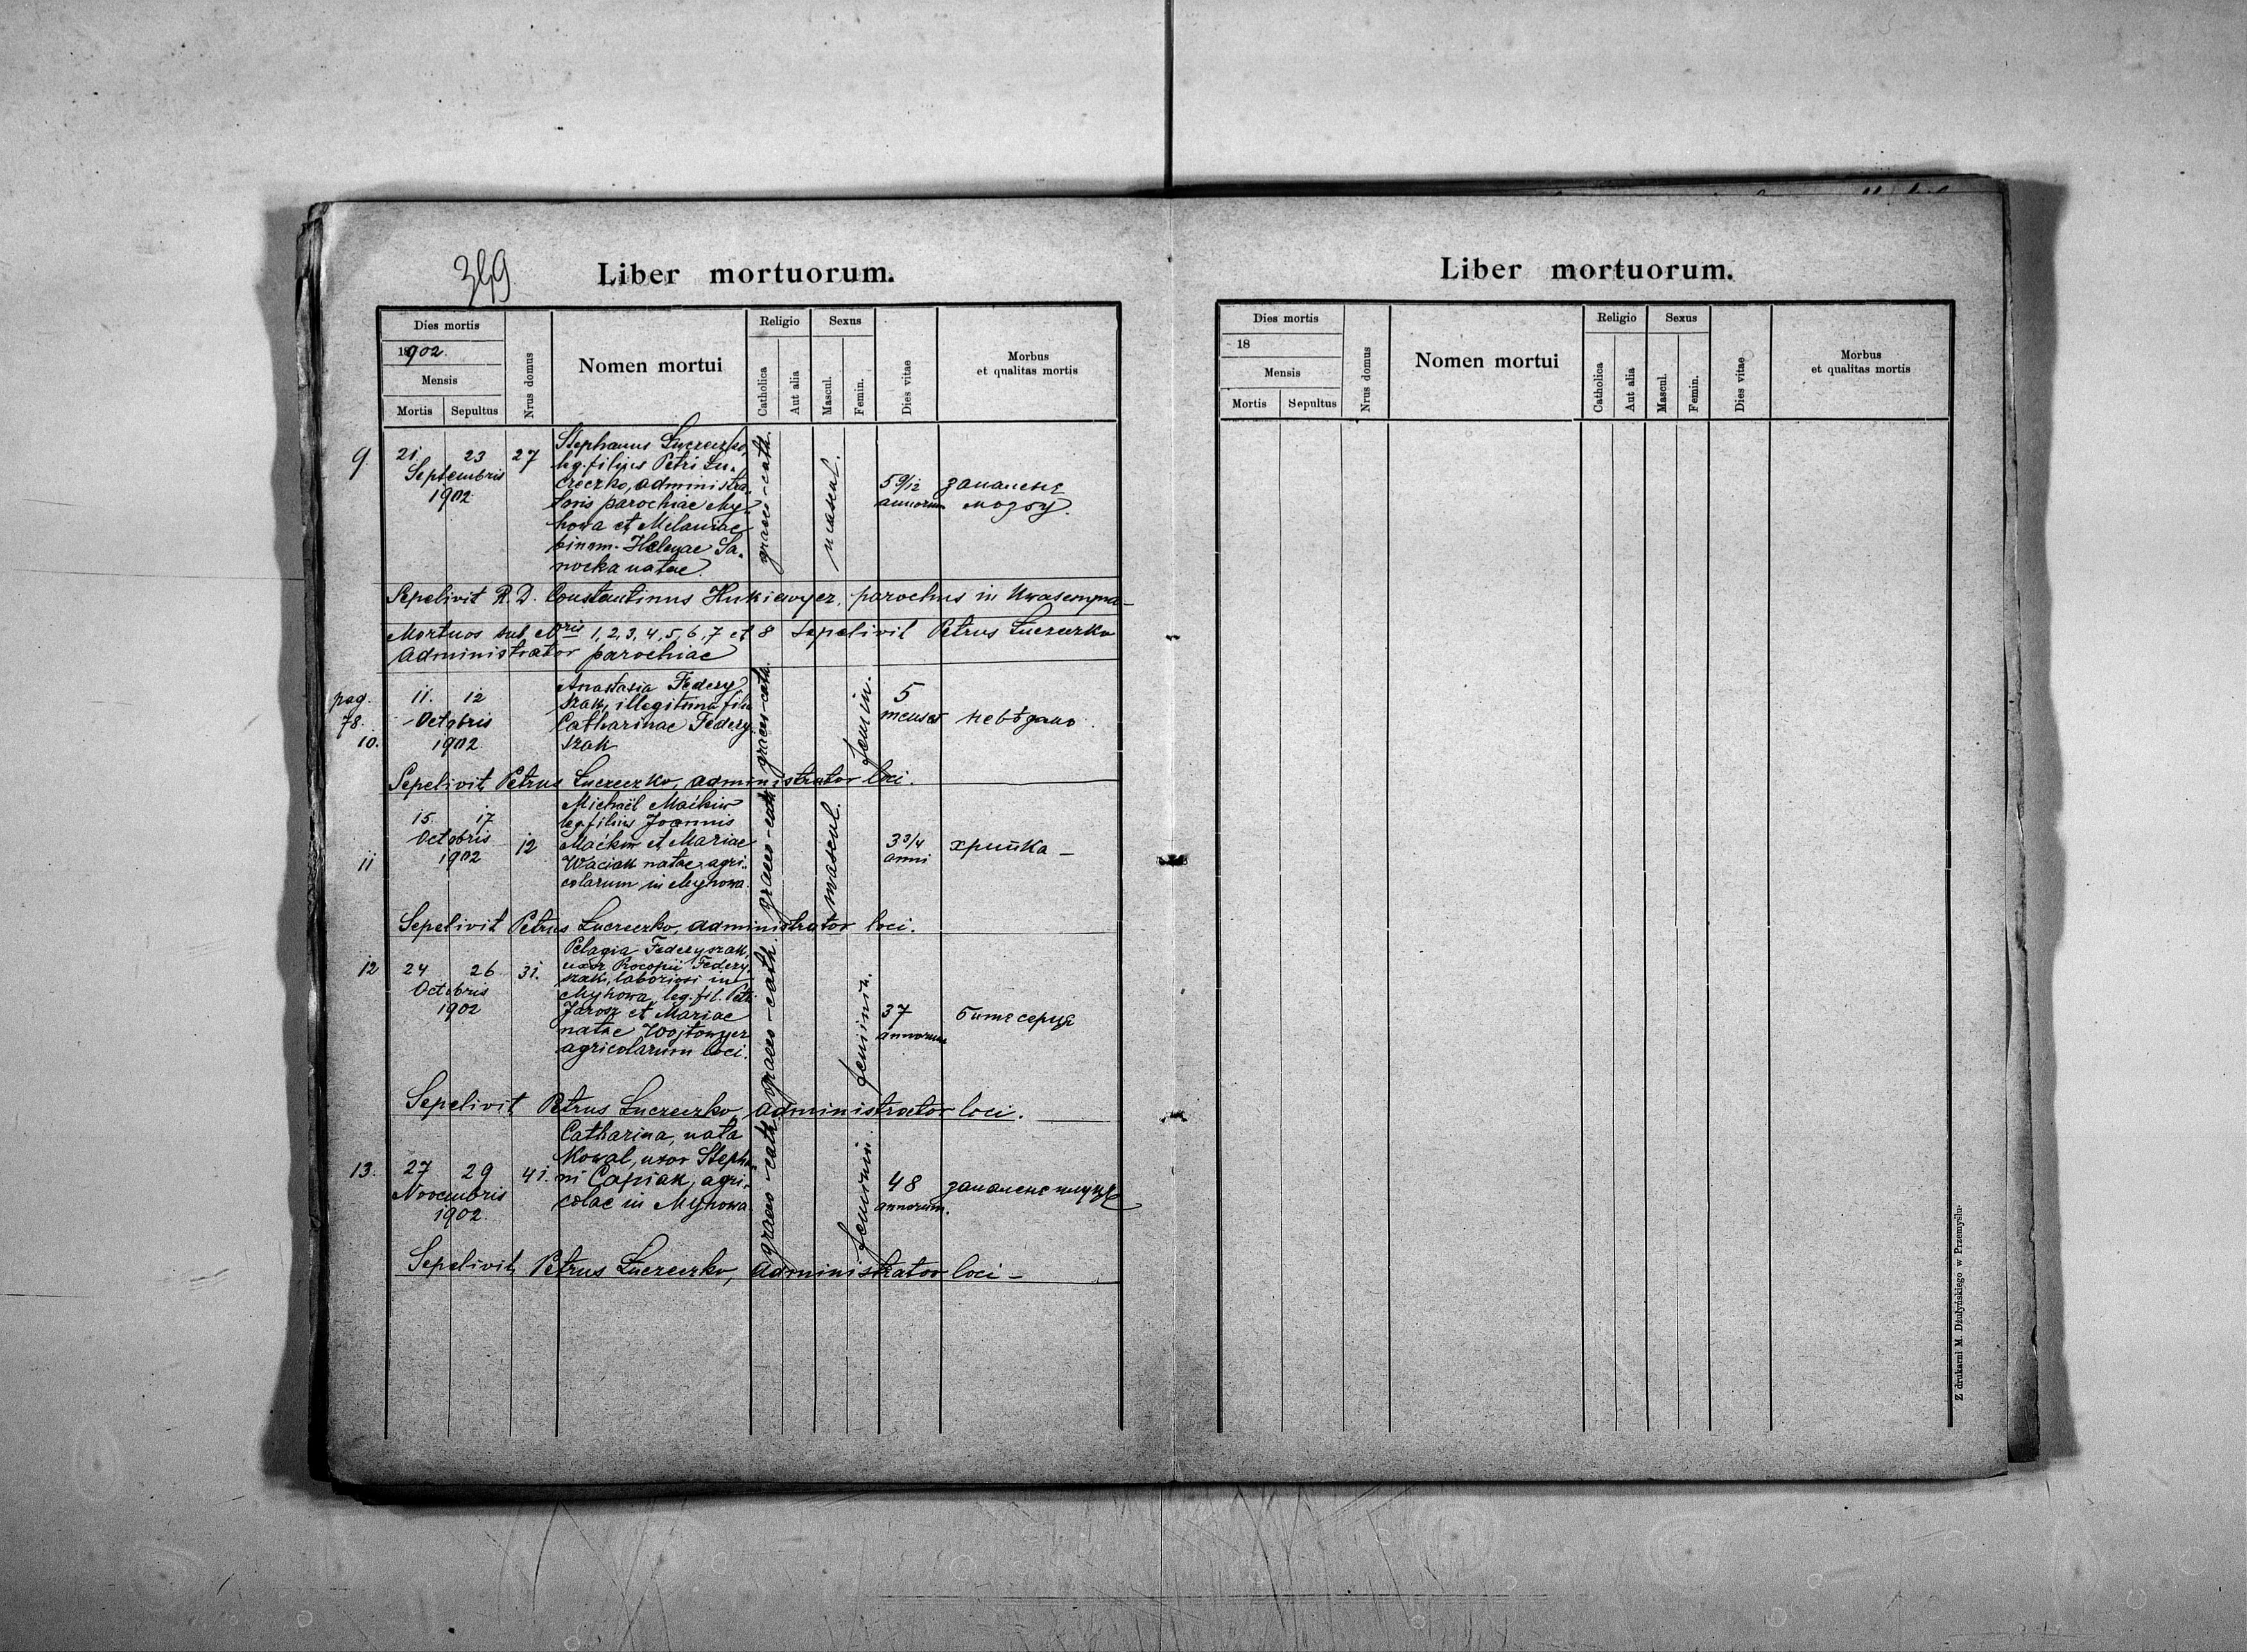 349
Liber mortuorum.
Dies mortis
18902.
Mensis
Mortis
Sepultus
Nrus domus
Nomen mortui
Religio
Catholica
Aut alia
Sexus
Mascul.
Femin.
Dies vitae
Morbus
et qualitas mortis
9.
21. 23
Septembris
1902
27
Stephanus Łuczeczko,
leg. filius Petri Łu-
czeczko, administra-
toris parochiae My-
howa et Melaniae
binom. Helenae Sa-
nocka natae.
graeco-cath.
mascul.
5 9/12
annorum
запаленє
мозгу.
Sepelivit R. D. Constantinus parochus in
Mortuos sub Nris 1, 2, 3, 4, 5, 6, 7 et 8 sepelivit Petrus Łuczeczko
administrator parochiae
pag.
78.
10.
11. 12
Octobris
1902.
Anastasia Federy
szak, illegitima filia
Catharinae Federy-
szak
graeco-cath.
femin.
5
menses
невѣдомо
Sepelivit Petrus Łuczeczko, administrator loci.
11
15. 17
Octobris
1902
12
Michaël Maćkiw
leg. filius Joannis
Maćkiw et Mariae
Waciak natae, agri-
colarum in Myhowa.
graeco-cath.
mascul.
3 3/4
anni
хрипка –
Sepelivit Petrus Łuczeczko, administrator loci.
12
24 26
Octobris
1902
31.
Pelagia Federyszak,
uxor Procopii Federy-
szak, laboriosi in
Myhowa, leg. fil. Petri
Jarosz et Mariae
natae Wojtowycz
agricolarum loci.
graeco-cath.
feminin.
37
annorum
битє серця
Sepelivit Petrus Łuczeczko, administrator loci.
13.
27 29
Novembris
1902.
41.
Catharina, nata
Kowal, uxor Stepha-
ni Capiak, agri-
colae in Myhowa
graeco-cath.
feminin.
48
annorum.
запаленє
Sepelivit Petrus Łuczeczko, administrator loci –
Liber mortuorum.
Dies mortis
18
Mensis
Mortis
Sepultus
Nrus domus
Nomen mortui
Religio
Catholica
Aut alia
Sexus
Mascul.
Femin.
Dies vitae
Morbus
et qualitas mortis
Z drukarni M. Dżułyńskiego w Przemyślu.